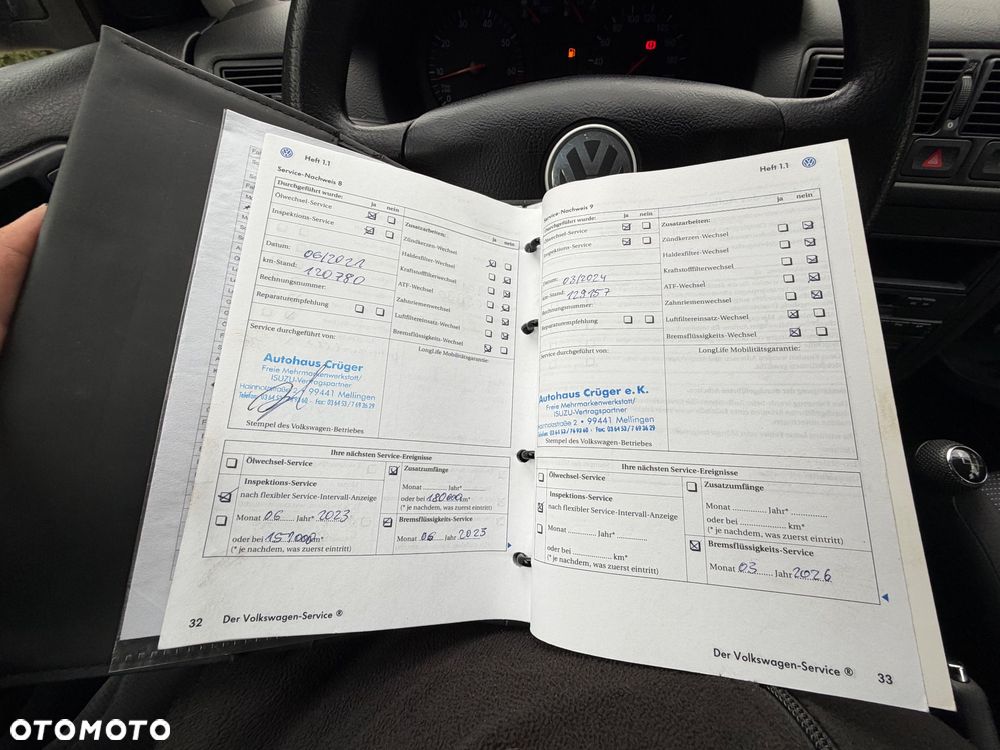 Heft 1.1
Service-Nachweis 8
Durchgeführt wurde: ja nein
Ölwechsel-Service
Inspektions-Service
Datum: 06/2021
km-Stand: 120780
Rechnungsnummer:
Reparaturempfehlung
Service durchgeführt von:
Autohaus Crüger
Freie Mehrmarkenwerkstatt/
ISUZU-Vertragspartner
Hainholzstraße 2 • 99441 Mellingen
Stempel des Volkswagen-Betriebes
Zusatzarbeiten: ja nein
Zündkerzen-Wechsel
Haldexfilter-Wechsel
Kraftstofffilterwechsel
ATF-Wechsel
Zahnriemenwechsel
Luftfiltereinsatz-Wechsel
Bremsflüssigkeits-Wechsel
LongLife Mobilitätsgarantie:
Ihre nächsten Service-Ereignisse
Ölwechsel-Service
Inspektions-Service
nach flexibler Service-Intervall-Anzeige
Monat 06 Jahr* 2023
oder bei km*
(* je nachdem, was zuerst eintritt)
Zusatzumfänge
Monat Jahr*
oder bei 180000 km*
(* je nachdem, was zuerst eintritt)
Bremsflüssigkeits-Service
Monat 06 Jahr 2023
32 Der Volkswagen-Service ®
Heft 1.1
Service-Nachweis 9
Durchgeführt wurde: ja nein
Ölwechsel-Service
Inspektions-Service
Datum: 03/2024
km-Stand: 129157
Rechnungsnummer:
Reparaturempfehlung
Service durchgeführt von:
Autohaus Crüger e.K.
Freie Mehrmarkenwerkstatt/
ISUZU-Vertragspartner
Hainholzstraße 2 • 99441 Mellingen
Telefon: 03 64 53 / 7 69 3 60 · Fax: 03 64 53 / 7 69 36 29
Stempel des Volkswagen-Betriebes
Zusatzarbeiten: ja nein
Zündkerzen-Wechsel
Haldexfilter-Wechsel
Kraftstofffilterwechsel
ATF-Wechsel
Zahnriemenwechsel
Luftfiltereinsatz-Wechsel
Bremsflüssigkeits-Wechsel
LongLife Mobilitätsgarantie:
Ihre nächsten Service-Ereignisse
Ölwechsel-Service
Inspektions-Service
nach flexibler Service-Intervall-Anzeige
Monat Jahr*
oder bei km*
(* je nachdem, was zuerst eintritt)
Zusatzumfänge
Monat Jahr*
oder bei km*
(* je nachdem, was zuerst eintritt)
Bremsflüssigkeits-Service
Monat 03 Jahr 2026
Der Volkswagen-Service ® 33
OTOMOTO